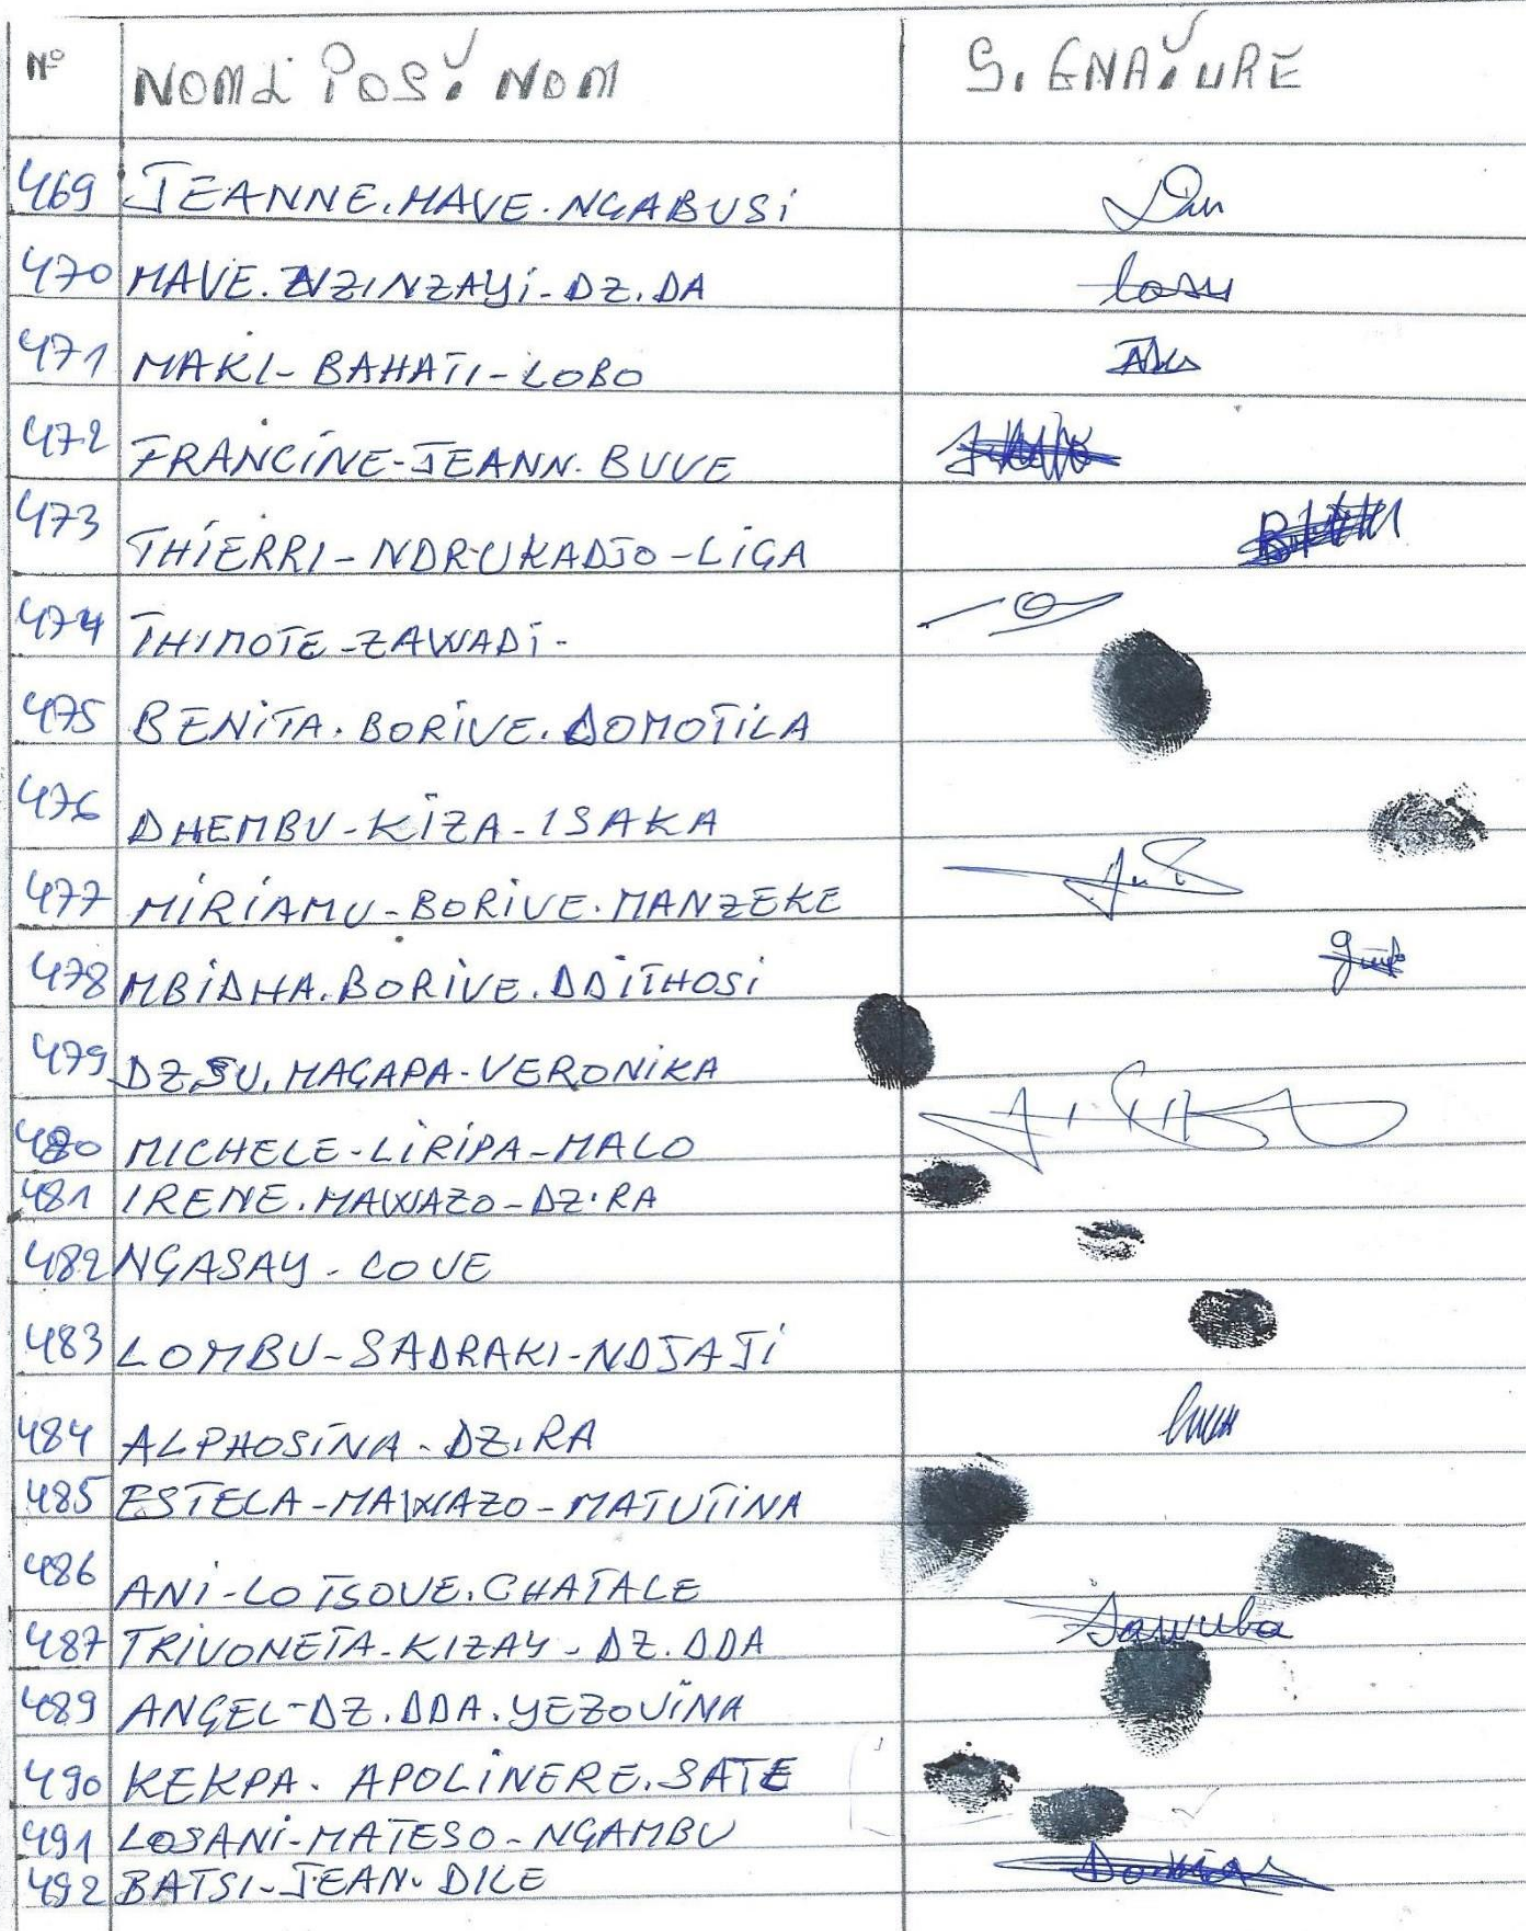 N° NOM & POST. NOM SIGNATURE
469 JEANNE. MAVE. NGABUSI
470 MAVE. NZINZAYI - DZ. DA
471 MAKI - BAHATI - LOBO
472 FRANCINE - JEANN. BUVE
473 THIERRI - NDRUKADJO - LIGA
474 THIMOTE - ZAWADI -
475 BENITA. BORIVE. DOMOTILA
476 DHEMBU - KIZA - ISAKA
477 MIRIAMU - BORIVE. MANZEKE
478 MBIDHA. BORIVE. DDITHOSI
479 DZSU. MAGAPA - VERONIKA
480 MICHELE - LIRIPA - MALO
481 IRENE. MAWAZO - DZ. RA
482 NGASAY - LOVE
483 LOMBU - SADRAKI - NDJAJI
484 ALPHOSINA - DZ. RA
485 ESTELA - MAWAZO - MATUTINA
486 ANI - LOTSOVE. CHATALE
487 TRIVONETA - KIZAY - DZ. DDA Sawuba
489 ANGEL - DZ. DDA. YEZOVINA
490 KEKPA. APOLINERE. SATE
491 LOSANI - MATESO - NGAMBU
492 BATSI - JEAN. DILE